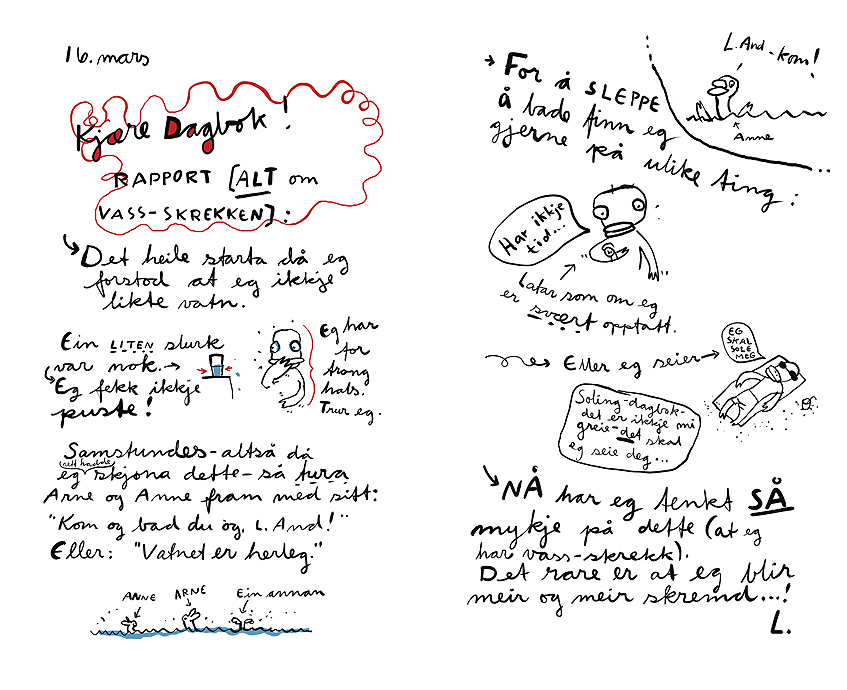 16. mars
Kjære Dagbok!
RAPPORT [ALT om
VASS-SKREKKEN]:
Det heile starta då eg
forstod at eg ikkje
likte vatn.
Ein LITEN slurk
var nok.
Eg fekk ikkje
puste!
Eg har
for
trong
hals.
Trur eg.
Samstundes-altså då
eg (rett hadde) skjøna dette-så tura
Arne og Anne fram med sitt:
"Kom og bad du òg, L. And!"
Eller: "Vatnet er herleg."
ANNE
ARNE
Ein annan
L. And-kom!
Anne
For å SLEPPE
å bade finn eg
gjerne på ulike ting:
Har ikkje
tid...
Latar som om eg
er svært opptatt.
Eller eg seier
EG
SKAL
SOLE
MEG
Soling-dagbok-
det er ikkje mi
greie-det skal
eg seie deg...
NÅ har eg tenkt SÅ
mykje på dette (at eg
har vass-skrekk).
Det rare er at eg blir
meir og meir skremd...!
L.